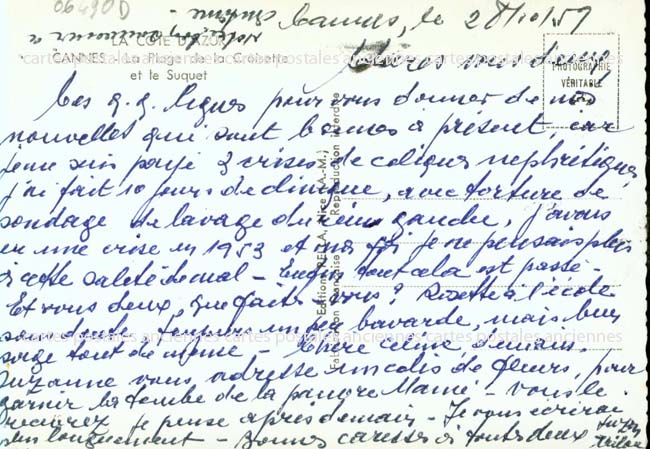 06490 D
Cannes, le 28/10/57
LA COTE D'AZUR
CANNES - La Plage de la Croisette
et le Suquet
PHOTOGRAPHIE
VÉRITABLE
Chères vous deux
Ces q.q. lignes pour vous donner de nos
nouvelles qui sont bonnes à présent car
je me suis payé 3 crises de coliques nephrétiques
j'ai fait 10 jours de clinique, avec torture de
sondage de lavage du rein gauche, j'avais
eu une crise en 1953 et ma foi je ne pensais plus
à cette saleté de mal - Enfin tout cela est passé -
Et vous deux, que faites-vous? Rosette à l'école
sans doute, toujours un peu bavarde, mais bien
sage tout de même - Chère Celine
Suzanne vous adresse un colis de fleurs, pour
garnir la tombe de la pauvre Mamé - vous le
recevrez je pense après demain - Je vous écrirai
plus longuement - Bonnes caresses à toutes deux
Reproduction interdite
cartes postales anciennes cartes postales anciennes cartes postales anciennes
cartes postales anciennes cartes postales anciennes cartes postales anciennes